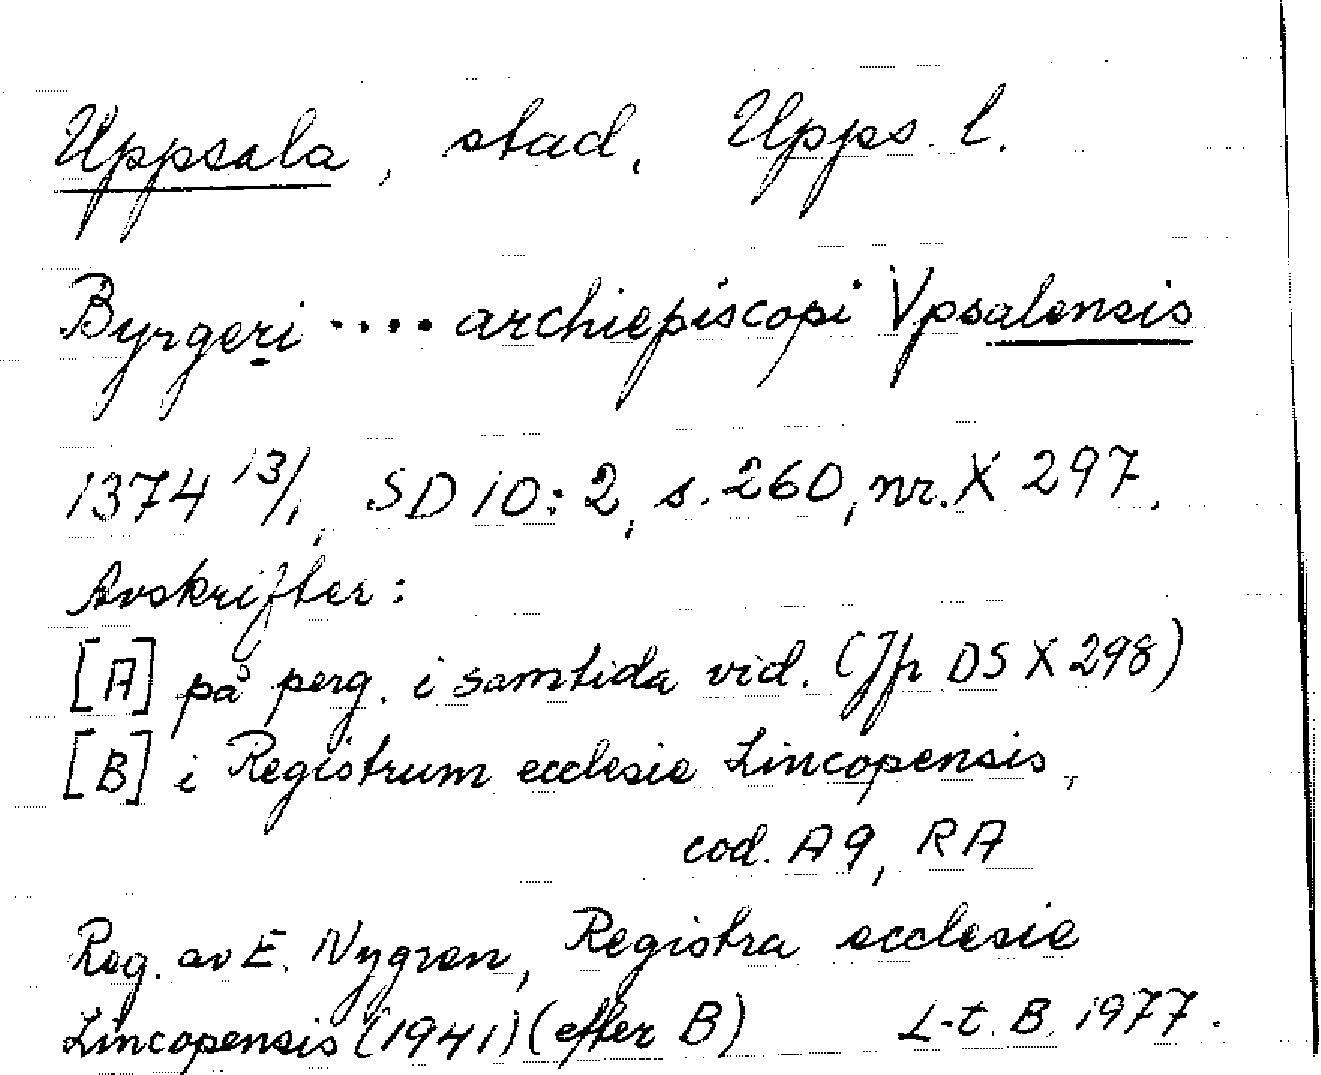 Uppsala, stad, Upps. l.
Byrgeri .... archiepiscopi Vpsalensis
1374 13/1, SD 10:2, s. 260, nr. X 297.
Avskrifter:
[A] på perg. i samtida vid. (Jfr DS X 298)
[B] i Registrum ecclesie Lincopensis,
cod. A 9, RA
Reg. av E. Nygren, Registra ecclesie
Lincopensis (1941) (efter B) L-t. B. 1977.